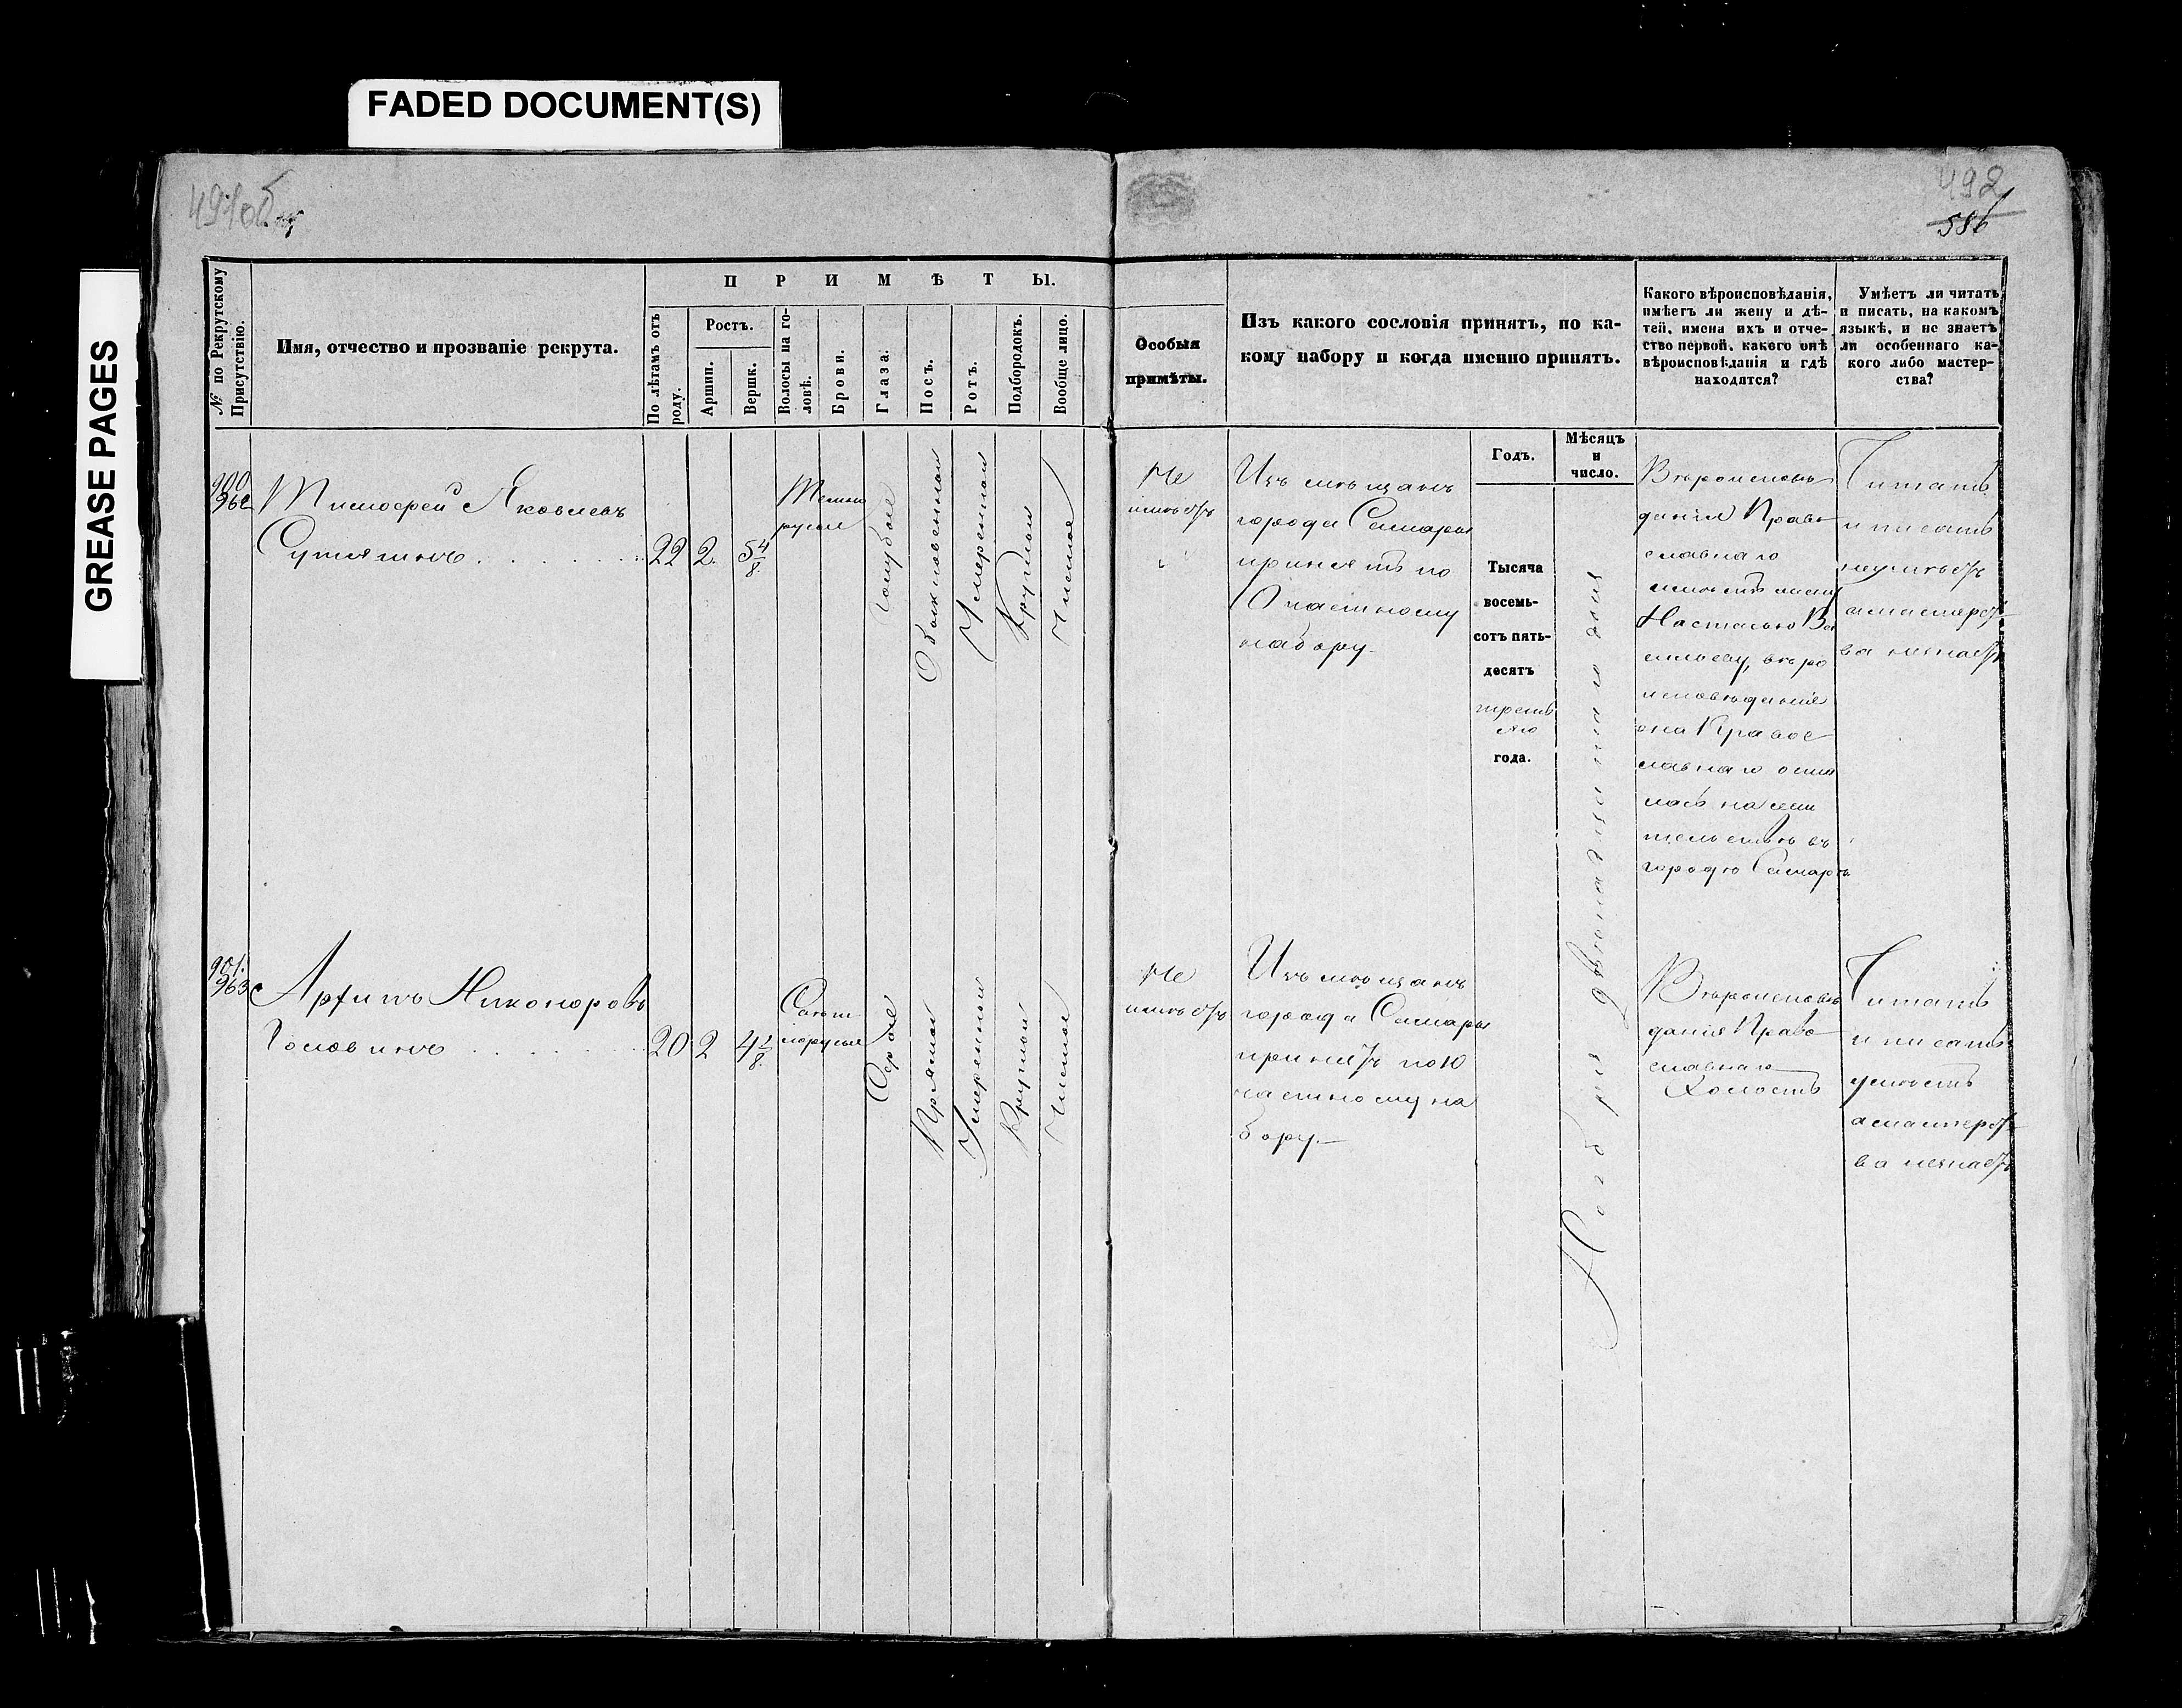 FADED DOCUMENT(S)
GREASE PAGES
491об.
492
586
№ по Рекрутскому Присутствію.
Имя, отчество и прозваніе рекрута.
ПРИМѢТЫ.
По лѣтамъ отъ роду.
Ростъ.
Аршин.
Вершк.
Волосы на головѣ.
Брови.
Глаза.
Носъ.
Ротъ.
Подбородокъ.
Вообще лицо.
Особыя
примѣты.
Изъ какого сословія принятъ, по ка-
кому набору и когда именно принятъ.
Какого вѣроисповѣданія,
имѣетъ ли жену и дѣ-
тей, имена ихъ и отче-
ство первой, какого онѣ
вѣроисповѣданія и гдѣ
находятся?
Умѣетъ ли читать
и писать, на какомъ
языкѣ, и не знаетъ
ли особеннаго ка-
кого либо мастер-
ства?
900
962
Тимофей Яковлевъ
22 2. 5 4/8.
Темно
русые
Голубые
Обыкновенной
Умеренной
Круглой
Чистое
Не
имѣетъ
Изъ мѣщанъ
города Самары
принятъ по
частному
набору.
Годъ.
Тысяча
восемь-
сотъ пять-
десятъ
третья
го
года.
Мѣсяцъ
и
число.
Ноября двѣнадцатаго дня
Вѣроисповѣ
данія Право
славнаго
имѣетъ жену
Настасью Ва
сильеву, вѣро
исповѣданія
она Правос
лавнаго оста
лась на жи
тельствѣ въ
городѣ Самарѣ
Читать
и писать
неумѣетъ
амастерст
ва незнаетъ
901.
963
Архипъ Никоноровъ
Головинъ
20 2 4 1/8.
Свѣт
лорусые
Серые
Прямой
Умеренной
Круглой
Чистое
Не
имѣетъ
Изъ мѣщанъ
города Самары
принятъ по
частному на
бору.
Вѣроисповѣ
данія Право
славнаго
Холостъ
Читать
и писать
умѣетъ
амастерст
ва незнаетъ